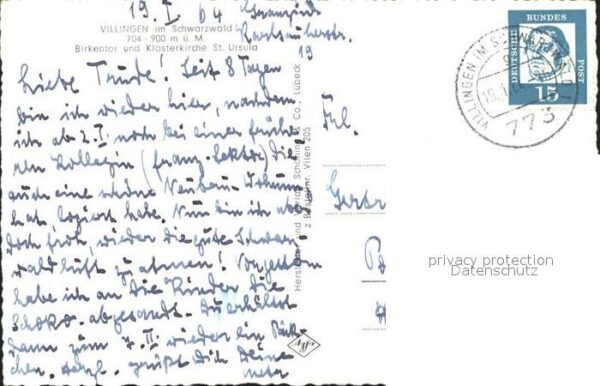 19. I 64
VILLINGEN im Schwarzwald
704 - 900 m ü. M.
Birkentor und Klosterkirche St. Ursula
19
Liebe Trude! Seit 8 Tagen
bin ich wieder hier, nachdem
ich ab 2. I. noch bei einer frühe-
ren Kollegin (franz. Lektor) die
auch eine schöne Neubau-Wohnung
hat logiert habe. Nun bin ich aber
doch froh, wieder die gute Schwarz-
waldluft zu atmen! Vorgestern
habe ich an die Kinder die
Schoko. abgesandt. Du erhältst
dann zum 7. II. wieder ein Päck-
chen. Herzl. grüßt Dich Deine
Hersteller und Verlag Schöning & Co., Lübeck
Bestellnr. Vilen 205
Frl.
DEUTSCHE
BUNDES
POST
15
VILLINGEN IM SCHWARZWALD
773
privacy protection
Datenschutz